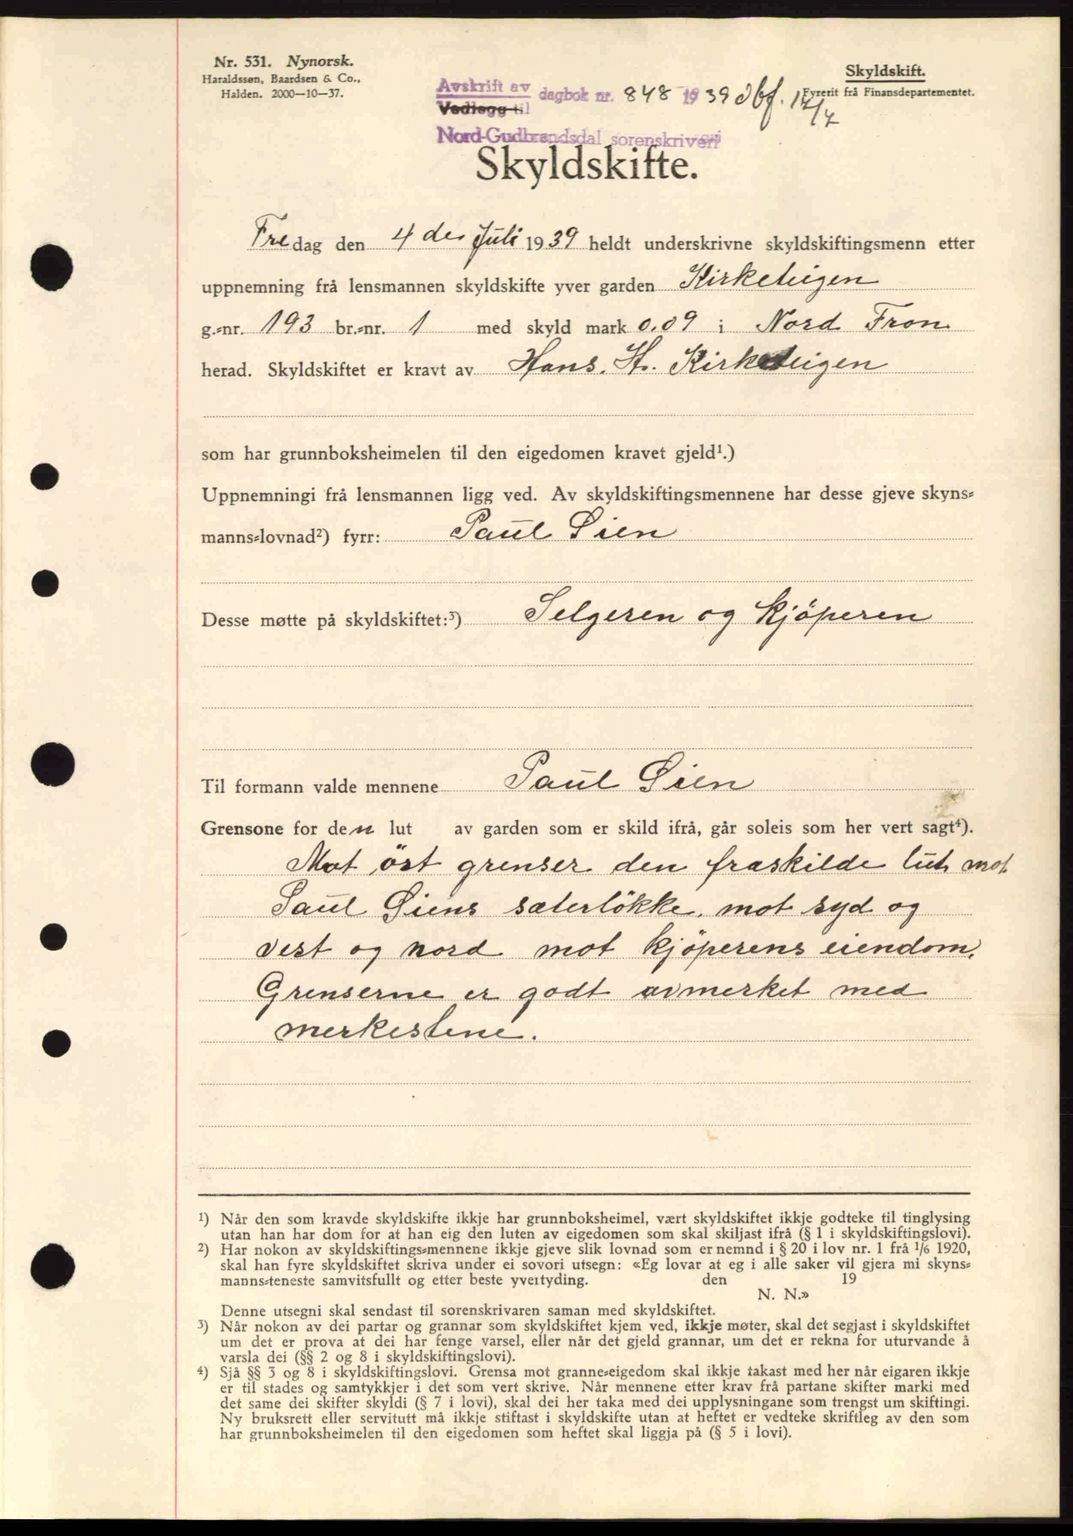 Nr. 531. Nynorsk.
Haraldssøn, Baardsen & Co.,
Halden. 2000—10—37.
Skyldskift.
Fyrerit frå Finansdepartementet.
Avskrift av dagbok nr. 848 1939
Vedlegg til
Nord-Gudbrandsdal sorenskriveri
Skyldskifte.
Fredag den 4 de Juli 1939 heldt underskrivne skyldskiftingsmenn etter
uppnemning frå lensmannen skyldskifte yver garden Kirketeigen
g.-nr. 193 br.-nr. 1 med skyld mark 0.09 i Nord Fron
herad. Skyldskiftet er kravt av Hans. H. Kirketeigen
som har grunnboksheimelen til den eigedomen kravet gjeld¹.)
Uppnemningi frå lensmannen ligg ved. Av skyldskiftingsmennene har desse gjeve skyns-
manns-lovnad²) fyrr: Paul Øien
Desse møtte på skyldskiftet:³) Selgeren og kjöperen
Til formann valde mennene Paul Øien
Grensone for den lut av garden som er skild ifrå, går soleis som her vert sagt⁴).
Mot öst grenser den fraskilde lut mot
Paul Øiens sæterlökke, mot syd og
vest og nord mot kjöperens eiendom.
Grenserne er godt avmerket med
merkestene.
¹) Når den som kravde skyldskifte ikkje har grunnboksheimel, vært skyldskiftet ikkje godteke til tinglysing
utan han har dom for at han eig den luten av eigedomen som skal skiljast ifrå (§ 1 i skyldskiftingslovi).
²) Har nokon av skyldskiftings-mennene ikkje gjeve slik lovnad som er nemnd i § 20 i lov nr. 1 frå 1/6 1920,
skal han fyre skyldskiftet skriva under ei sovori utsegn: «Eg lovar at eg i alle saker vil gjera mi skyns-
manns-teneste samvitsfullt og etter beste yvertyding. den 19
N. N.»
Denne utsegni skal sendast til sorenskrivaren saman med skyldskiftet.
³) Når nokon av dei partar og grannar som skyldskiftet kjem ved, ikkje møter, skal det segjast i skyldskiftet
um det er prova at dei har fenge varsel, eller når det gjeld grannar, um det er rekna for uturvande å
varsla dei (§§ 2 og 8 i skyldskiftingslovi).
⁴) Sjå §§ 3 og 8 i skyldskiftingslovi. Grensa mot granne-eigedom skal ikkje takast med her når eigaren ikkje
er til stades og samtykkjer i det som vert skrive. Når mennene etter krav frå partane skifter marki med
det same dei skifter skyldi (§ 7 i lovi), skal dei her taka med dei upplysningane som trengst um skiftingi.
Ny bruksrett eller servitutt må ikkje stiftast i skyldskifte utan at heftet er vedteke skriftleg av den som
har grunnboksheimelen til den eigedomen som heftet skal liggja på (§ 5 i lovi).